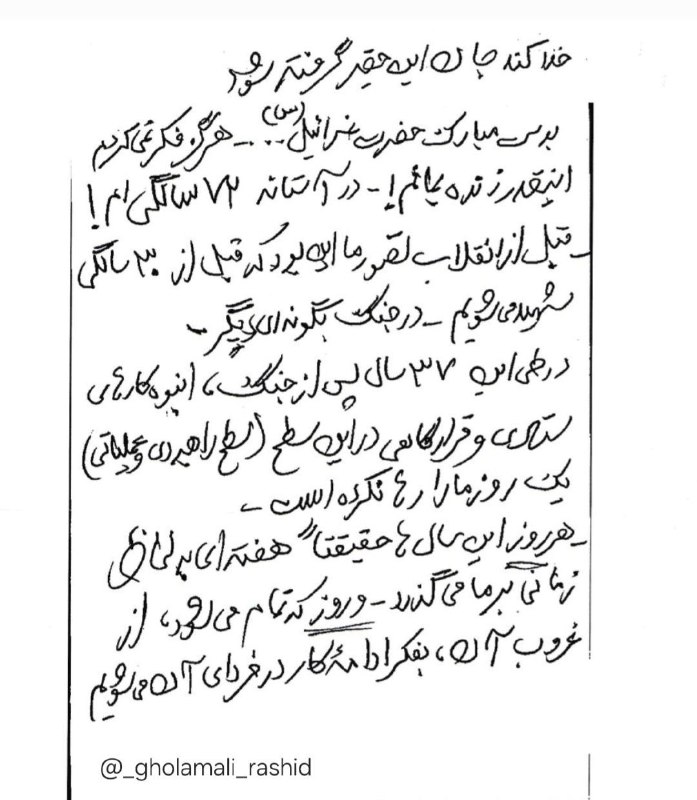 خدا کند جان این حقیر گرفته شود
بدست مبارک حضرت عزرائیل (س) .. - هرگز فکر نمی‌کردم
اینقدر زنده بمانم! - در آستانه ۷۲ سالگی ام!
- قبل از انقلاب تصور ما این بود که قبل از ۳۰ سالگی
شهید می‌شویم - در جنگ بگونه‌ای دیگر -
در طی این ۳۷ سال پس از جنگ، انبوه کارهای
ستادی و قرارگاهی در این سطح (سطح راهبردی و عملیاتی)
یک روز ما را رها نکرده است -
- هر روز این سال‌ها حقیقتاً هفته‌ای به لحاظ
زمانی بر ما می‌گذرد - و روز که تمام می‌شود، از
غروب آن، بفکر ادامهٔ کار در فردای آن می‌شویم
@_gholamali_rashid